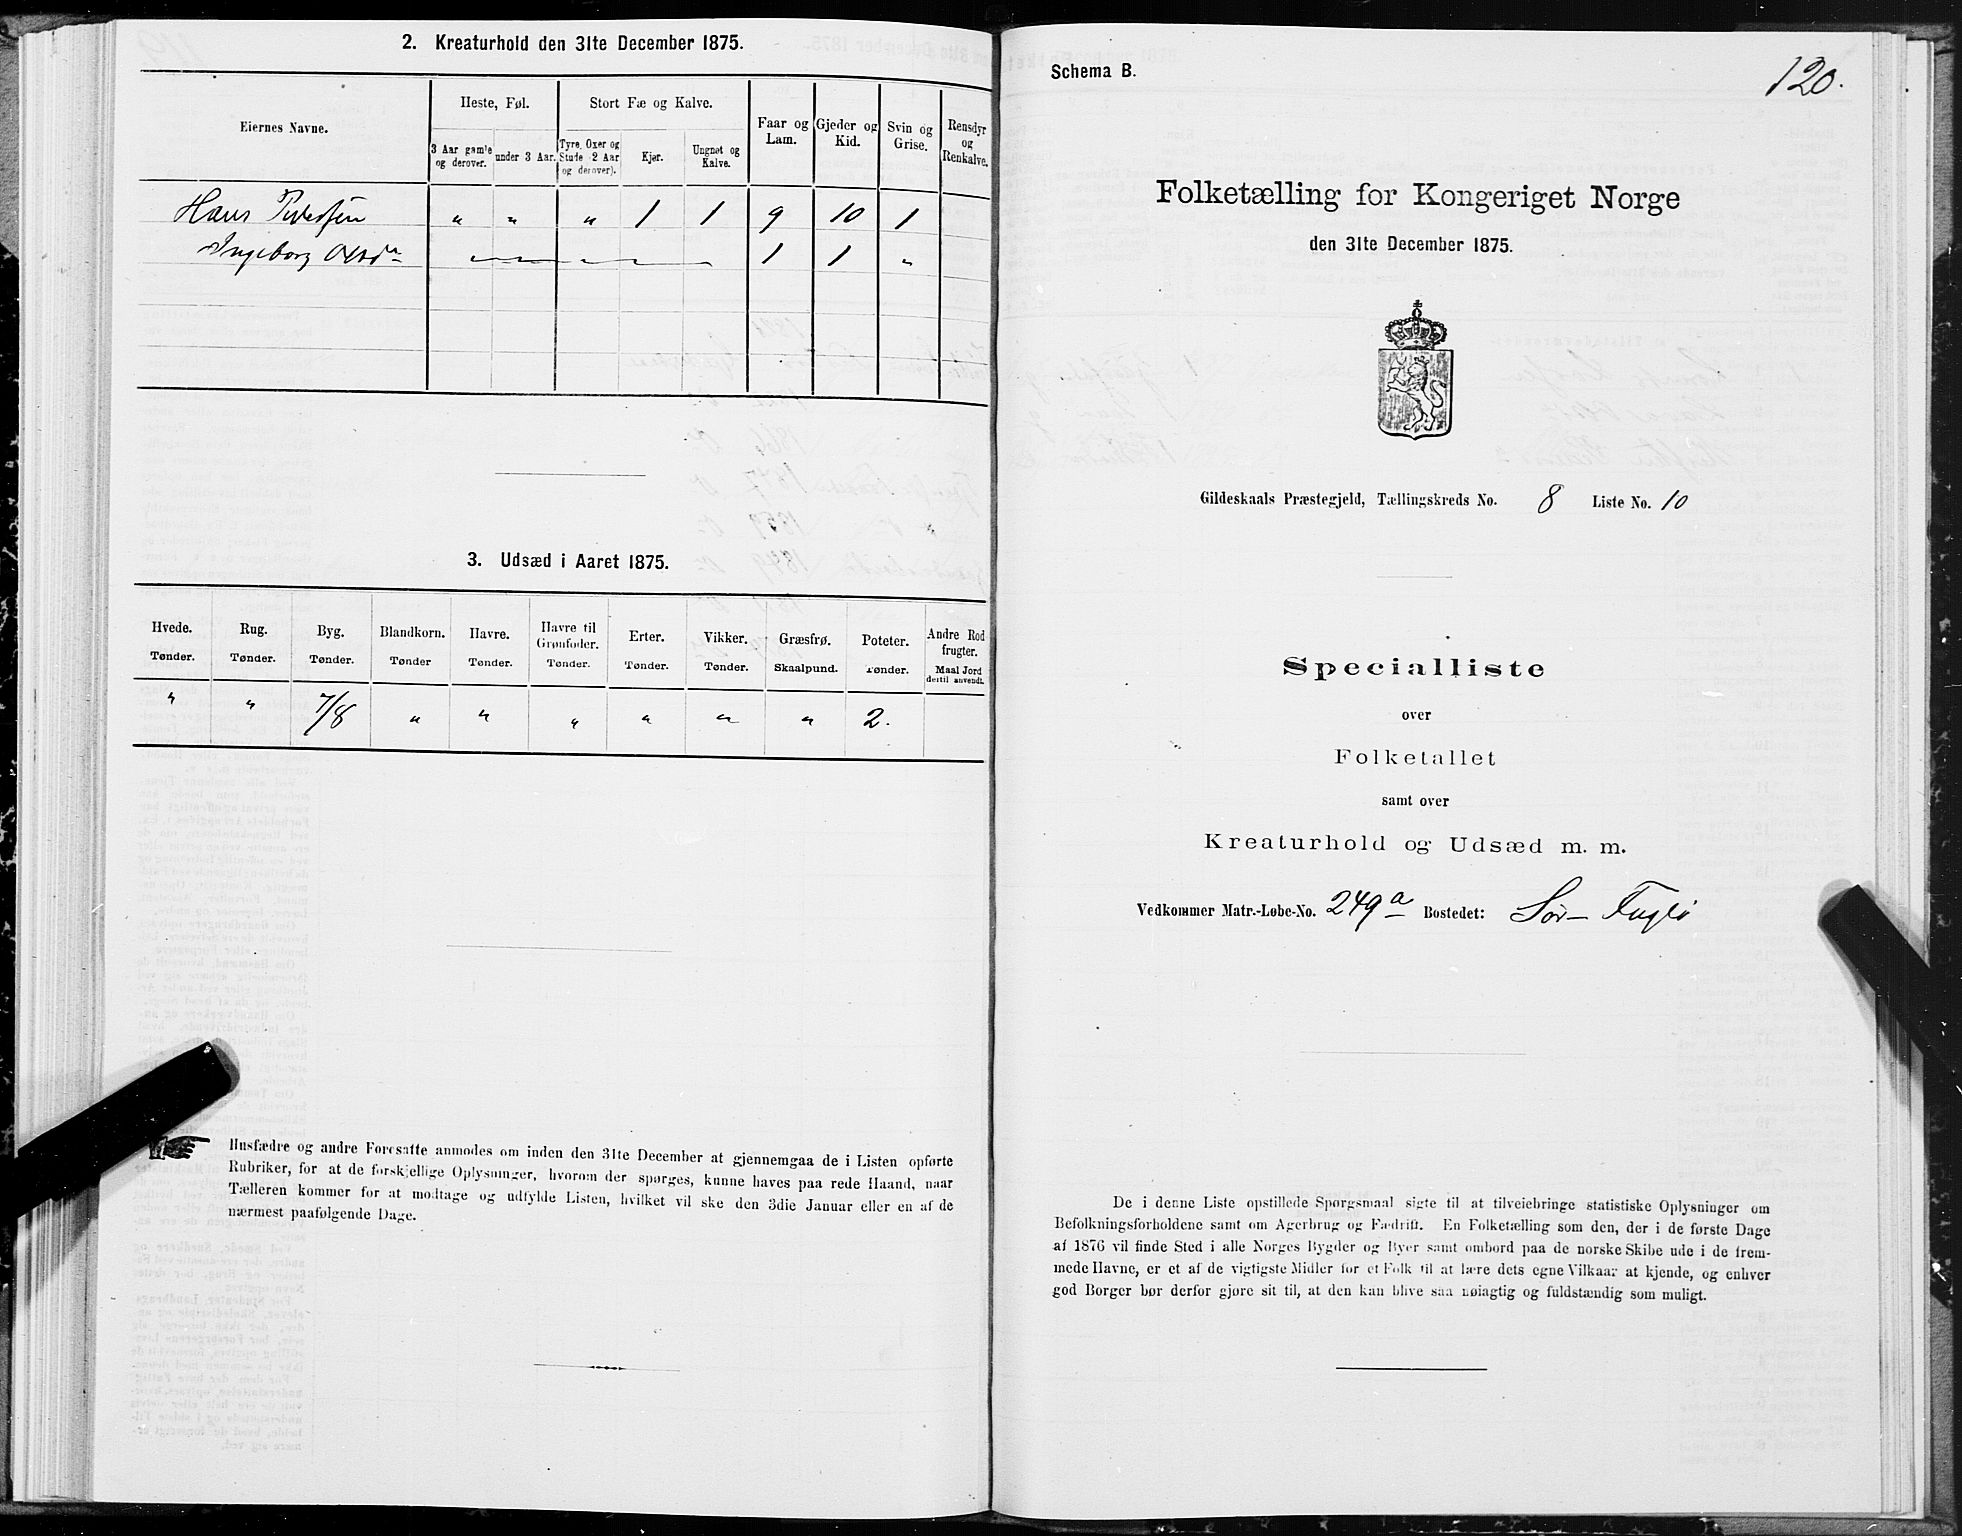 2. Kreaturhold den 31te December 1875.
Eiernes Navne.
Heste, Føl.
Stort Fæ og Kalve.
Faar og Lam.
Gjeder og Kid.
Svin og Grise.
Rensdyr og Renkalve.
3 Aar gamle og derover.
under 3 Aar.
Tyre, Oxer og Stude (2 Aar og derover).
Kjør.
Ungnøt og Kalve.
Hans Pedersen " " " 1 1 9 10 1
Ingeborg Olsdr 1 1 "
3. Udsæd i Aaret 1875.
Hvede. Rug. Byg. Blandkorn. Havre. Havre til Grønfoder. Erter. Vikker. Græsfrø. Poteter. Andre Rodfrugter.
Tønder. Tønder. Tønder. Tønder Tønder. Tønder. Tønder. Tønder. Skaalpund. Tønder. Maal Jord dertil anvendt.
" " 7/8 " " " " " " 2.
Husfædre og andre Foresatte anmodes om inden den 31te December at gjennemgaa de i Listen opførte
Rubriker, for at de forskjellige Oplysninger, hvorom der spørges, kunne haves paa rede Haand, naar
Tælleren kommer for at modtage og udfylde Listen, hvilket vil ske den 3die Januar eller en af de
nærmest paafølgende Dage.
Schema B.
120.
Folketælling for Kongeriget Norge
den 31te December 1875.
Gildeskaals Præstegjeld, Tællingskreds No. 8 Liste No. 10
Specialliste
over
Folketallet
samt over
Kreaturhold og Udsæd m. m.
Vedkommer Matr.-Løbe-No. 249a Bostedet: Sør-Fuglø
De i denne Liste opstillede Spørgsmaal sigte til at tilveiebringe statistiske Oplysninger om
Befolkningsforholdene samt om Agerbrug og Fædrift. En Folketælling som den, der i de første Dage
af 1876 vil finde Sted i alle Norges Bygder og Byer samt ombord paa de norske Skibe ude i de frem-
mede Havne, er et af de vigtigste Midler for et Folk til at lære dets egne Vilkaar at kjende, og enhver
god Borger bør derfor gjøre sit til, at den kan blive saa nøiagtig og fuldstændig som muligt.